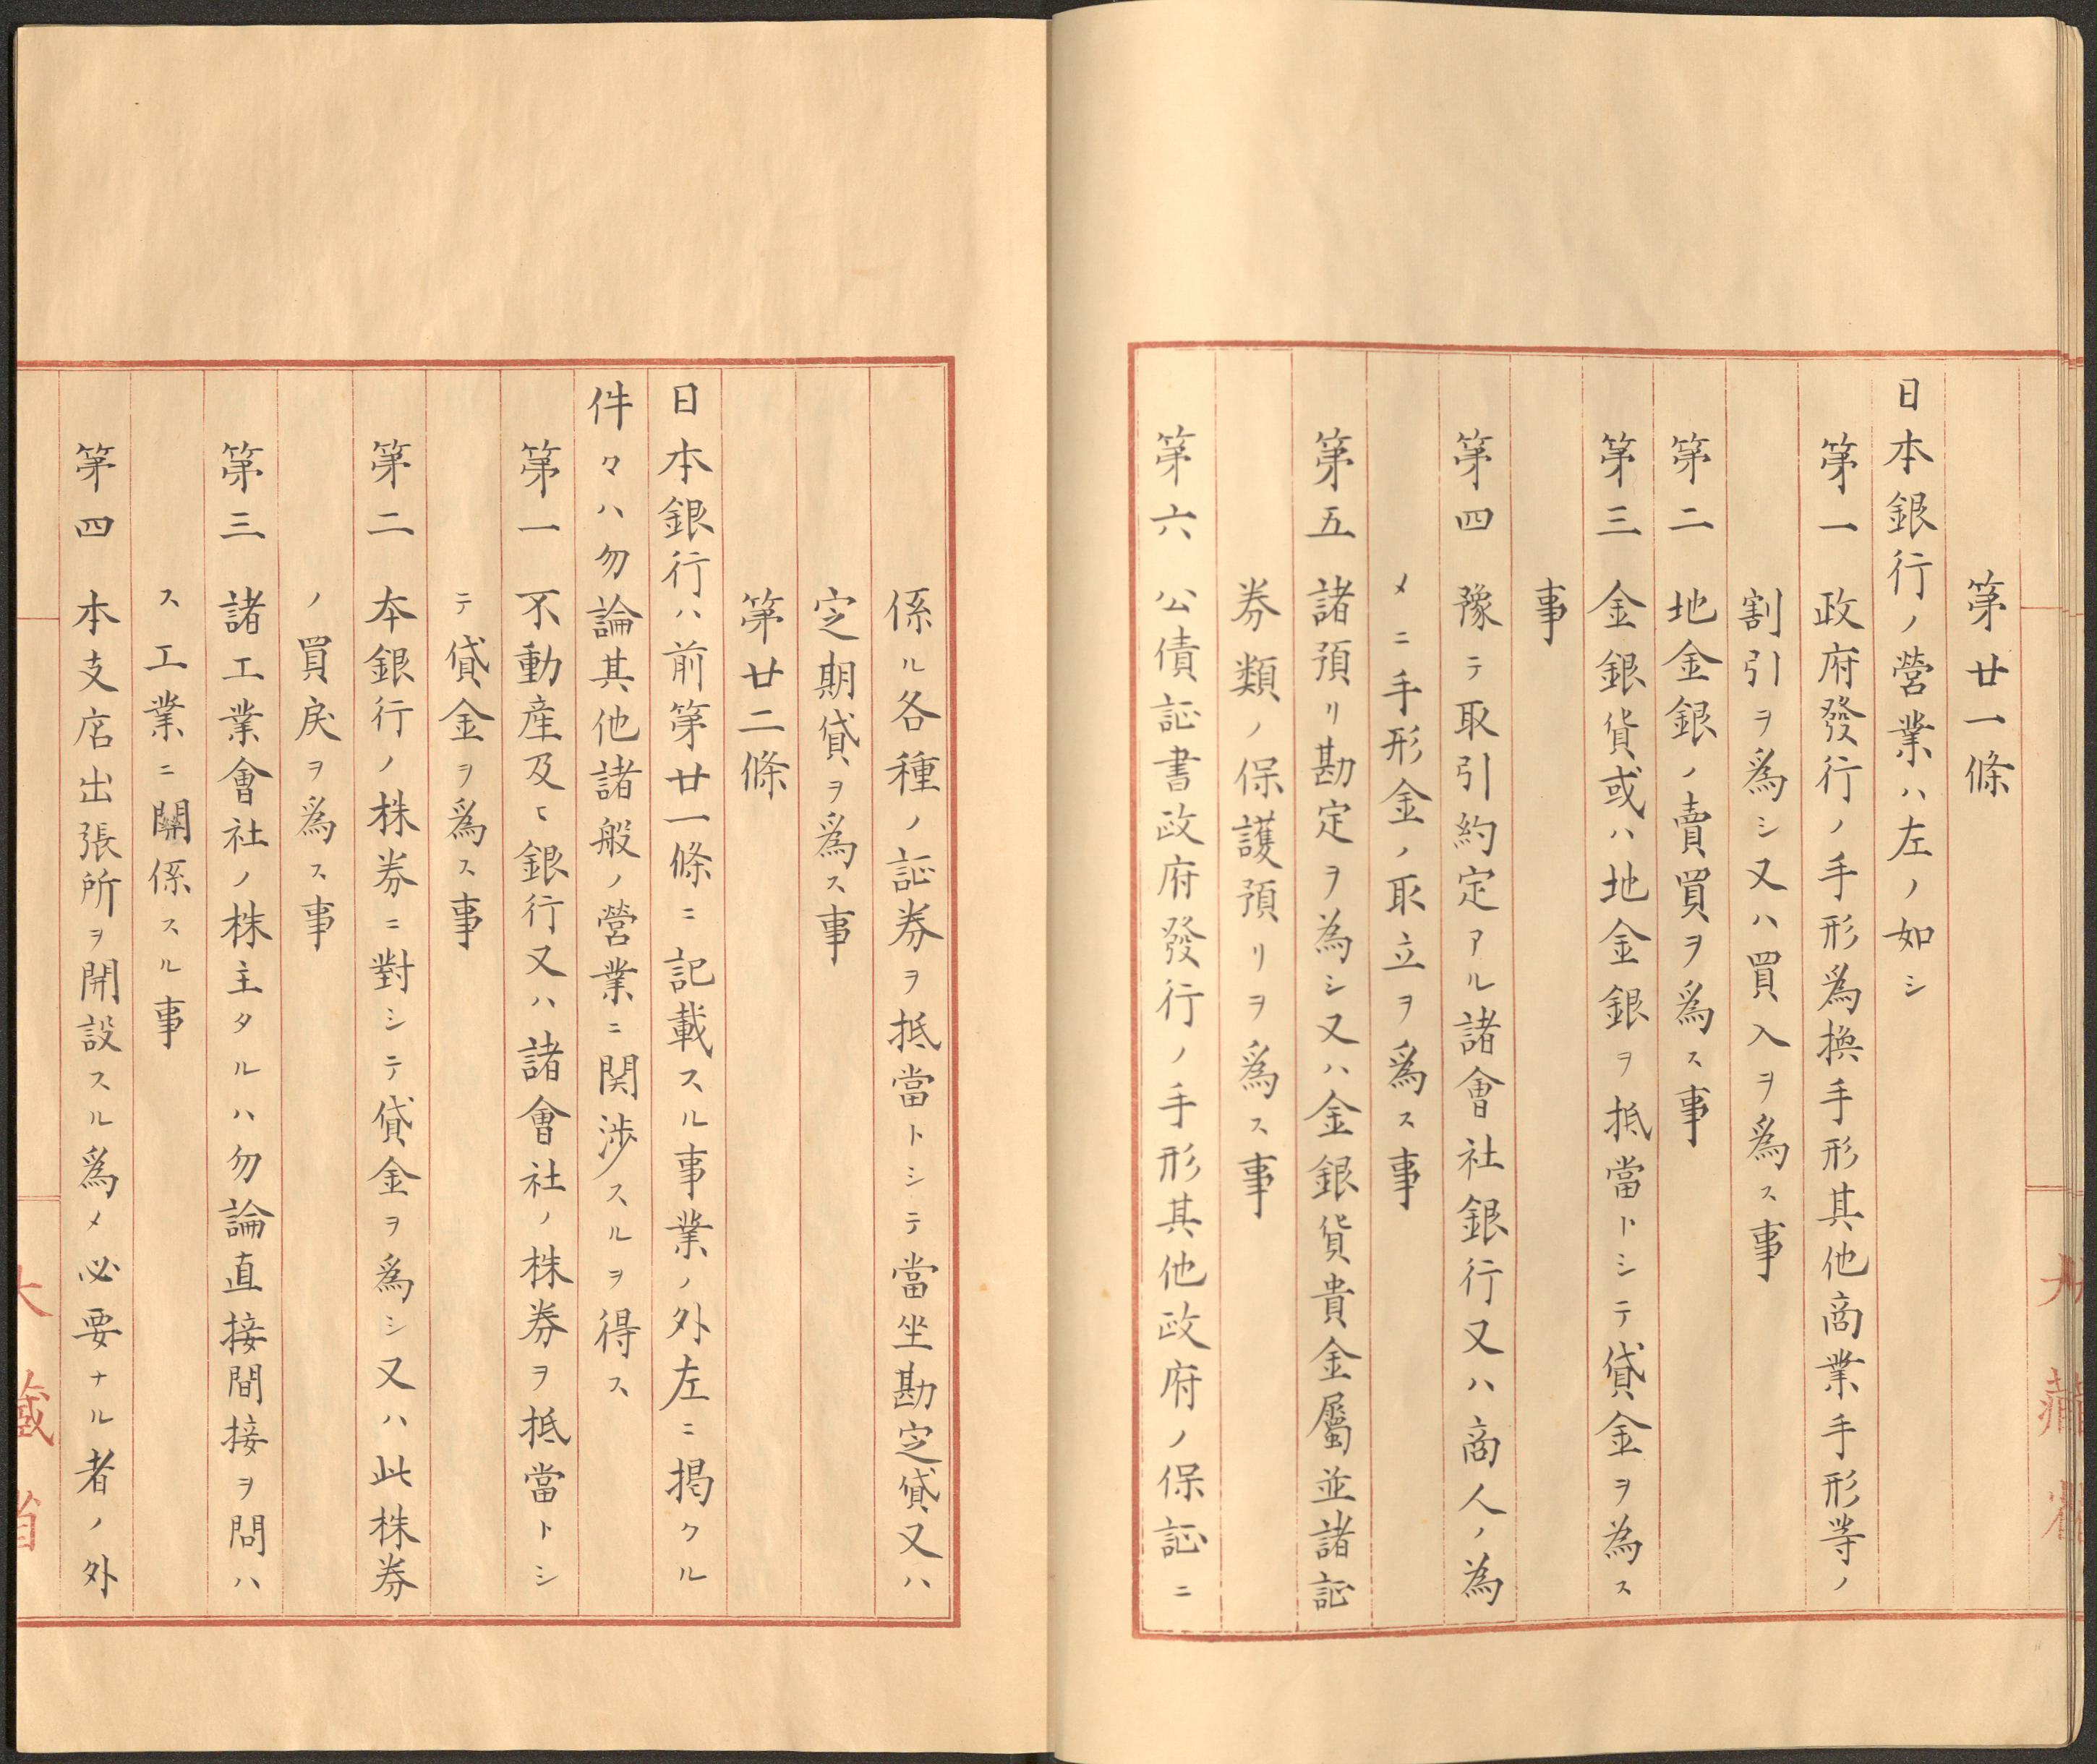 第廿一條
日本銀行ノ營業ハ左ノ如シ
第一 政府發行ノ手形爲換手形其他商業手形等ノ
割引ヲ爲シ又ハ買入ヲ爲ス事
第二 地金銀ノ賣買ヲ爲ス事
第三 金銀貨或ハ地金銀ヲ抵當トシテ貸金ヲ為ス
事
第四 豫テ取引約定アル諸會社銀行又ハ商人ノ為
メニ手形金ノ取立ヲ爲ス事
第五 諸預リ勘定ヲ為シ又ハ金銀貨貴金屬並諸証
券類ノ保護預リヲ爲ス事
第六 公債証書政府發行ノ手形其他政府ノ保証ニ
係ル各種ノ証券ヲ抵當トシテ當坐勘定貸又ハ
定期貸ヲ爲ス事
第廿二條
日本銀行ハ前第廿一條ニ記載スル事業ノ外左ニ掲クル
件々ハ勿論其他諸般ノ營業ニ関渉スルヲ得ス
第一 不動産及ヒ銀行又ハ諸會社ノ株券ヲ抵當トシ
テ貸金ヲ爲ス事
第二 本銀行ノ株券ニ對シテ貸金ヲ爲シ又ハ此株券
ノ買戻ヲ爲ス事
第三 諸工業會社ノ株主タルハ勿論直接間接ヲ問ハ
ス工業ニ關係スル事
第四 本支店出張所ヲ開設スル爲メ必要ナル者ノ外
大藏省